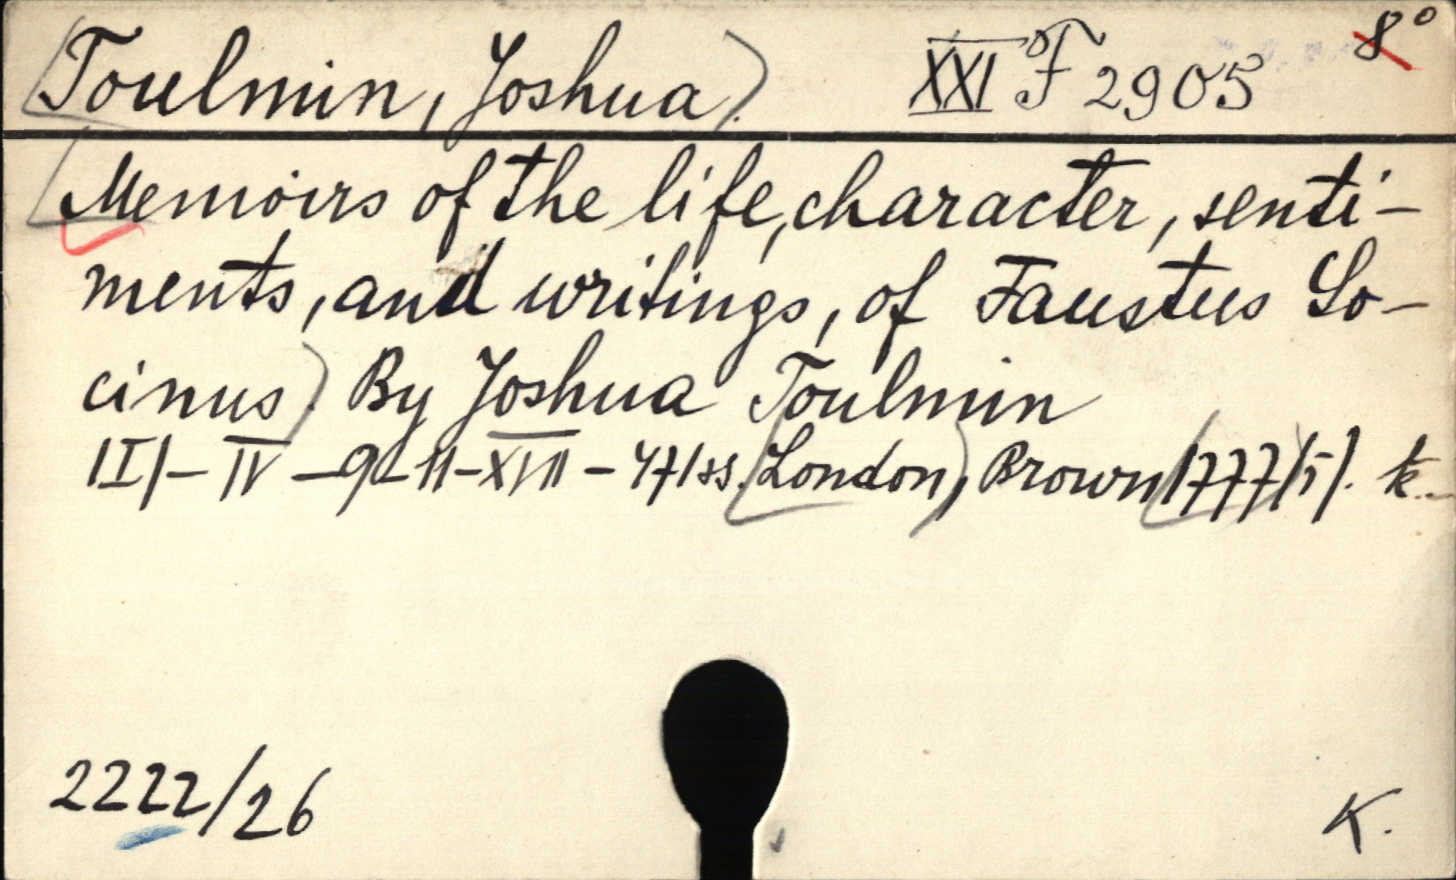 Toulmin, Joshua). XXI F 2905 8°
Memoirs of the life, character, senti-
ments, and writings, of Faustus So-
cinus). By Joshua Toulmin
London), Brown 1777 k.
2222/26
K.